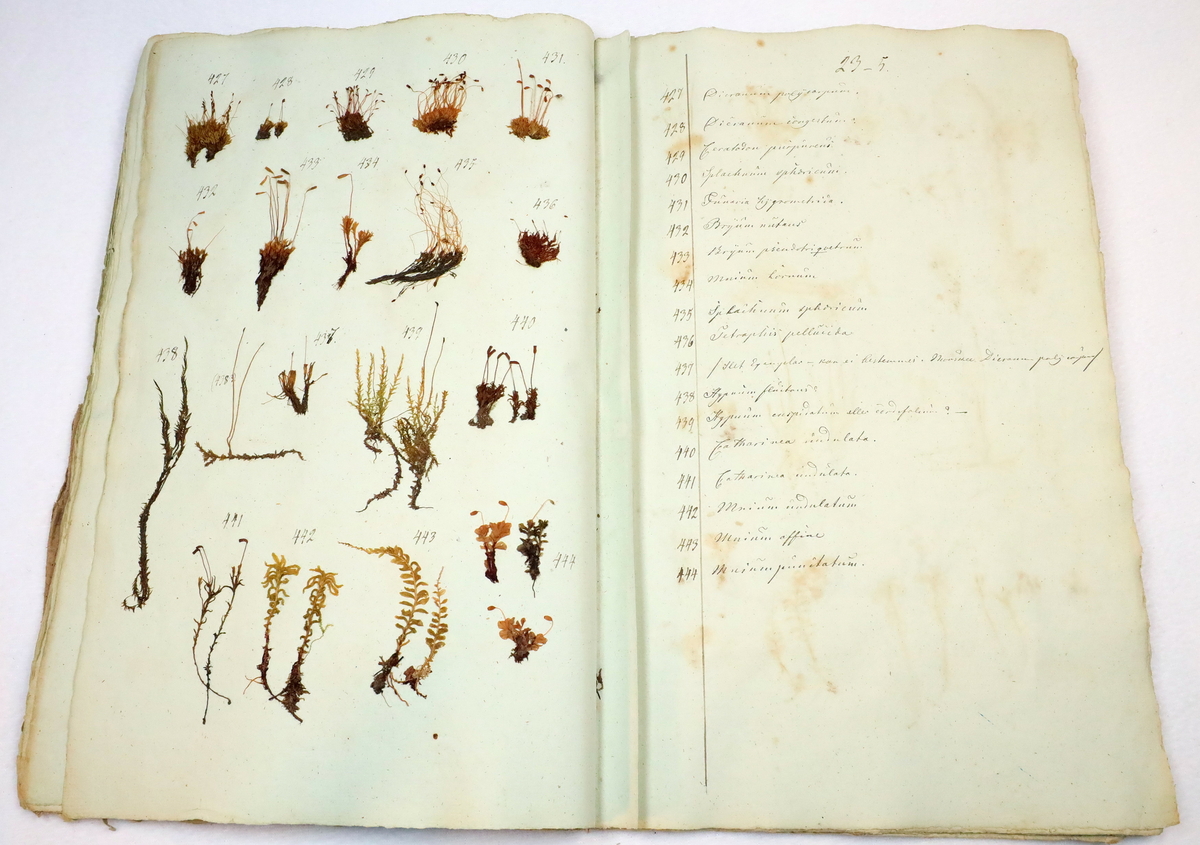 427
428
429
430
431.
432
433
434
435
436
438
(438)
437
439
440
441
442
443
444
23-5.
427 Dicranum polycarpum.
428 Dicranum congestum?
429 Ceratodon purpureus.
430 Splachnum sphäricum.
431 Funaria hygrometrica.
432 Bryum nutans
433 Bryum pseudotriquetrum
434 Mnium
435 Splachnum sphäricum
436 Tetraphis pellucida
437 Dicranum
438 Hypnum fluitans?
439 Hypnum cuspidatum eller cordifolium? —
440 Catharinea undulata.
441 Catharinea undulata.
442 Mnium undulatum
443 Mnium affine
444 Mnium punctatum.